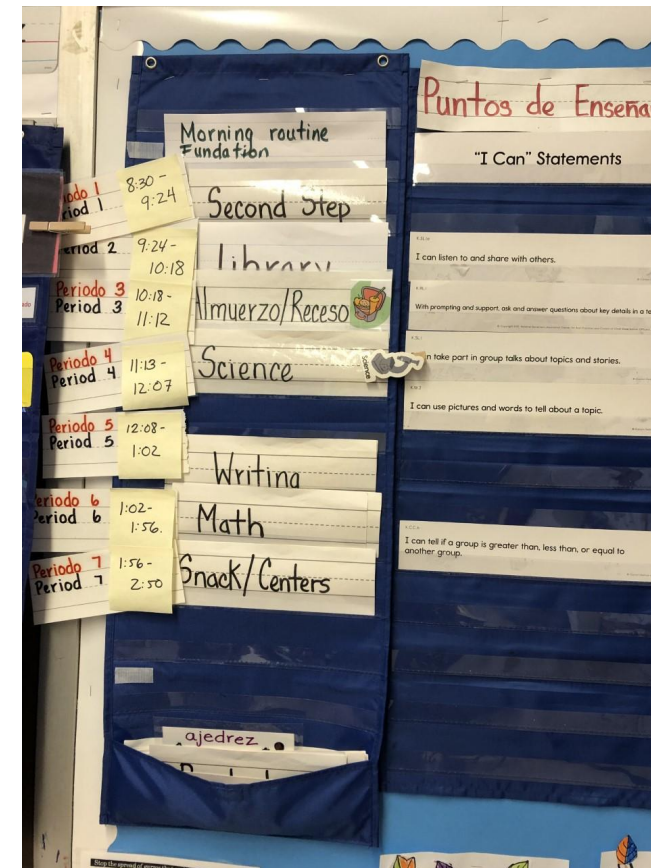 Puntos de Enseña
"I Can" Statements
Morning routine
Fundation
iodo 1
riod 1
8:30 -
9:24
Second Step
eriod 2
9:24-
10:18
library
Periodo 3
Period 3
10:18-
11:12
Almuerzo/Receso
Periodo 4
Period 4
11:13-
12:07
Science
Science
Periodo 5
Period 5
12:08-
1:02
Writing
eriodo 6
Period 6
1:02-
1:56.
Math
Periodo 7
Period 7
1:56-
2:50
Snack/Centers
ajedrez
I can listen to and share with others.
With prompting and support, ask and answer questions about key details in a te
n take part in group talks about topics and stories.
I can use pictures and words to tell about a topic.
I can tell if a group is greater than, less than, or equal to
another group.
Stop the spread of germs